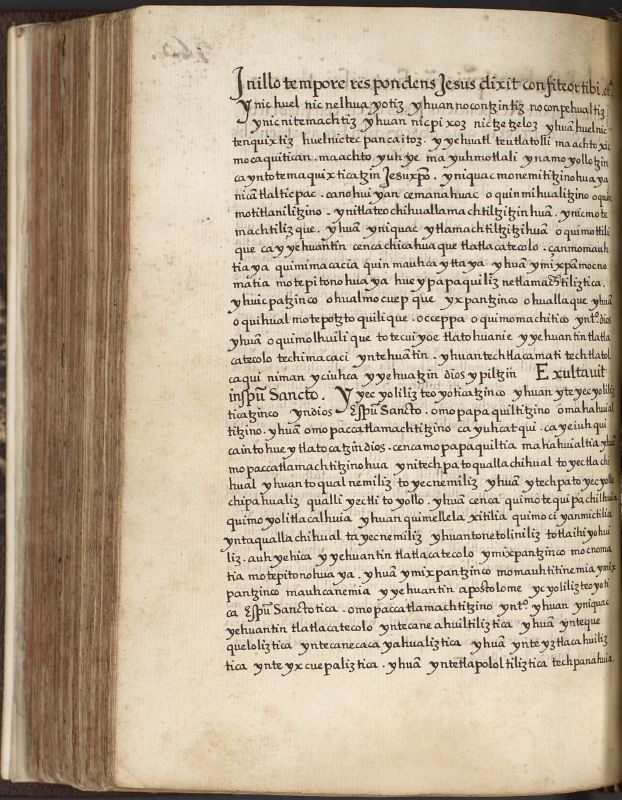 In illo tempore respondens Jesus dixit confiteor tibi etc.
Ynic huel nic nelhuayotiz yhuan nocontzintiz noconpehualtiz
ynic nitemachtiz yhuan nicpixoz nictzetzeloz yhuā huel nic
tenquixtiz huelnictecpancaitoz. y yehuatl teutlatolli maachto xic
mocaquitican. maachto yuhye ma yuhmotlali ynamo yollotzin
ca yntotemaquixticatzin Jesuxpo. yniquac monemitzinohuaya
nicā tlalticpac. canohuiyan cemanahuac oquinmihualitzino oquin
motitlanilitzino. ynitlateochihuallamachtiltzitzinhuā. ynicmote
machtilizque. yhuā yniquac ytlamachtiltzitzihuā oquimottili
que ca yyehuantin cenca chicahuaque tlatlacatecolo. çanmomauh
tiaya quimimacacia quinmauhcaytta ya. yhuā ymixpāmocno
matia motepitonohuaya huey papaquiliz netlamachtiliztica.
yhuicpatzinco ohualmocuepque yxpantzinco ohuallaque yhuā
oquihualmotepotzto quilique. occeppa oquimomachitico yntº dios
yhuā oquimolhuilique totecuiyoe tlatohuanie yyehuantin tlatla
catecolo techimacaci yntehuātin. yhuan techtlacamati techtlatol
caqui niman yciuhca yyehuatzin dios ypiltzin Exultavit
inspū Sancto. Y yecyoliliz teoyoticatzinco yhuan yteyecyoliliz
ticatzinco yndios Espū Sancto. omopapaquiltitzino omahahuial
titzino. yhuā omopaccatlamachtitzino ca yuhcatqui. cayeiuhqui
cain to huey tlatocatzin dios. cencamopapaquiltia mahahuialtia yhuā
mopaccatlamachtitzinohua ynitechpa toquallachihual toyectlachi
hual yhuan toqualnemiliz toyecnemiliz yhuā ytechpa toyecyollo
chipahualiz qualli yectli toyollo. yhuā cenca quimotequipachilhuia
quimoyolitlacalhuia yhuan quimellelaxitilia quimociyanmictilia
yntaqualla chihual tayecnemiliz yhuan tonetoliniliz totlaihiyohui
liz. auh yehica yyehuantin tlatlacatecolo ymixpantzinco mocnoma
tia motepitonohua ya. yhuā ymixpantzinco momauhtitinemia ymix
pantzinco mauhcanemia yyehuantin apostolome ycyoliliz teoyoti
ca Espū Sanctotica. omopaccatlamachtitzino yntº yhuan yniquac
yehuantin tlatlacatecolo yntecaneahuiltiliztica yhuā ynteque
queloliztica yntecanecacayahualiztica yhuā ynteyztlacahuiliz
tica ynteyxcuepaliztica. yhuā yntetlapololtiliztica techpanahuia